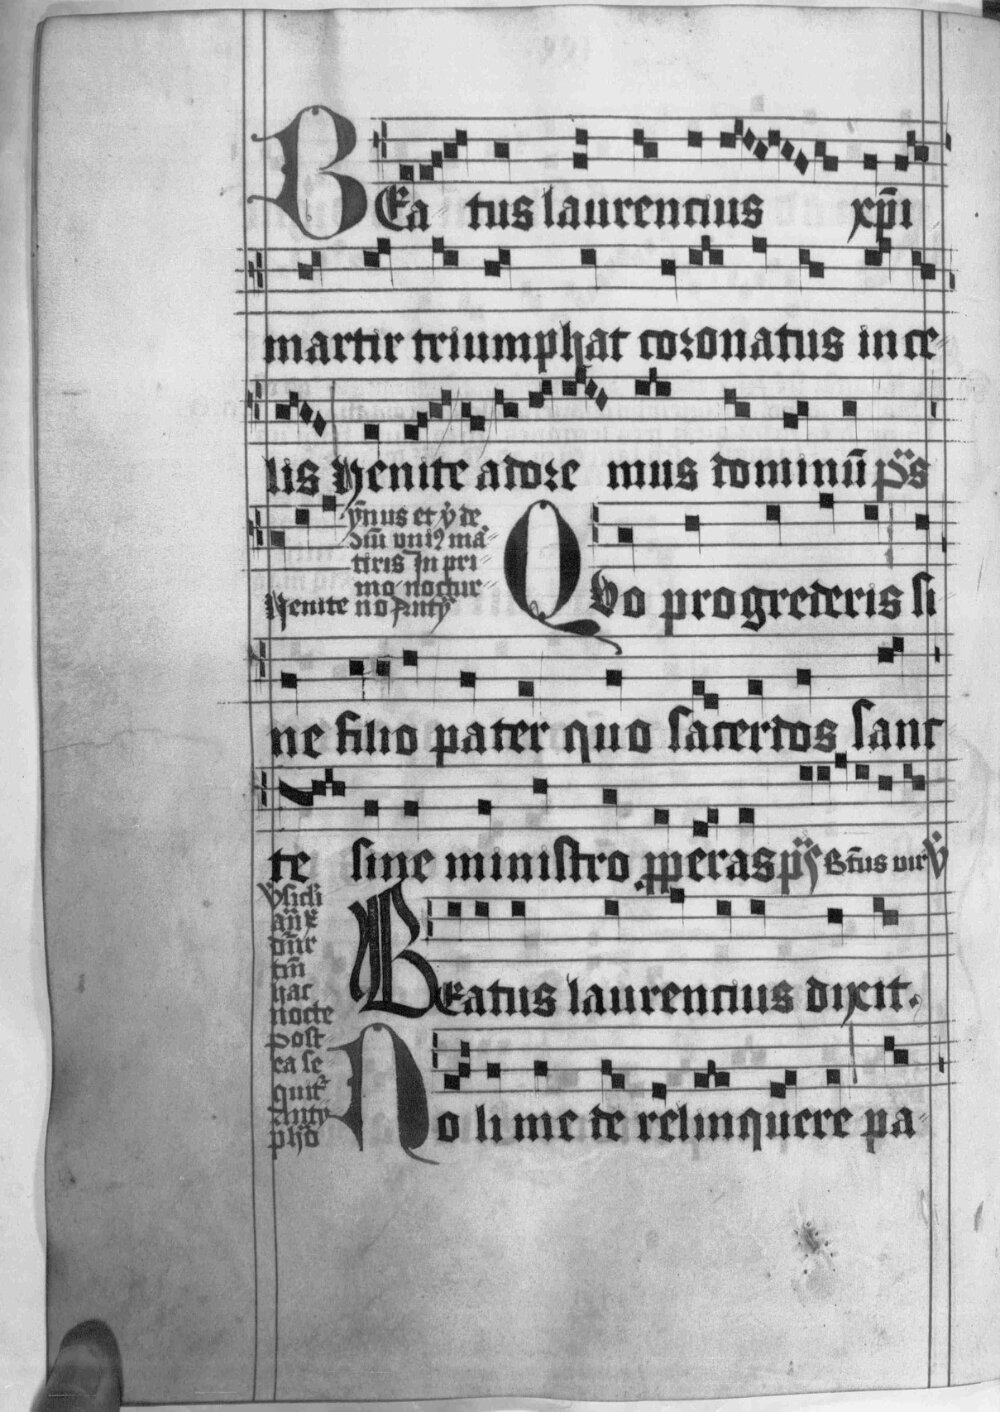 BEa tus laurencius xp̄i
martir triumphat coronatus in ce
lis Venite adore mus dominū ps̄
ỹnus et v̾ de
vni⁹ ma
tiris In pri
mo noctur
Venite no Anty
QVo progrederis si
ne filio pater quo sacerdos sanc
te sine ministro ꝓperas ps̄ Bt̄us vir v̾
BEatus laurencius dixit.
hac
nocte
post
ea se
quit᷑
Anty
phō
NO li me de relinquere pa